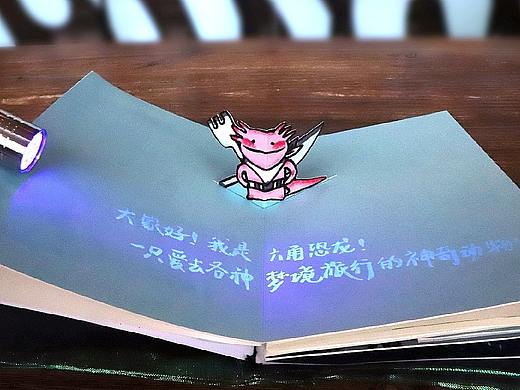 大家好！我是六角恐龙！
一只爱去各种梦境旅行的神奇动物